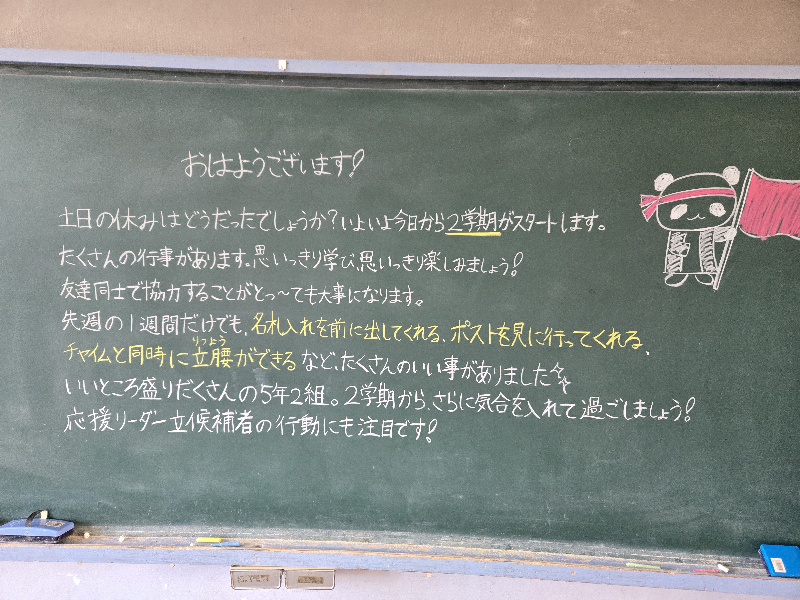 おはようございます!
土日の休みはどうだったでしょうか?いよいよ今日から2学期がスタートします。
たくさんの行事があります。思いっきり学び、思いっきり楽しみましょう!
友達同士で協力することがとっ〜ても大事になります。
先週の1週間だけでも、名札入れを前に出してくれる、ポストを見に行ってくれる、
チャイムと同時に立腰ができるなど、たくさんのいい事がありました☆☆
りつよう
いいところ盛りだくさんの5年2組。2学期から、さらに気合を入れて過ごしましょう!
応援リーダー立候補者の行動にも注目です!